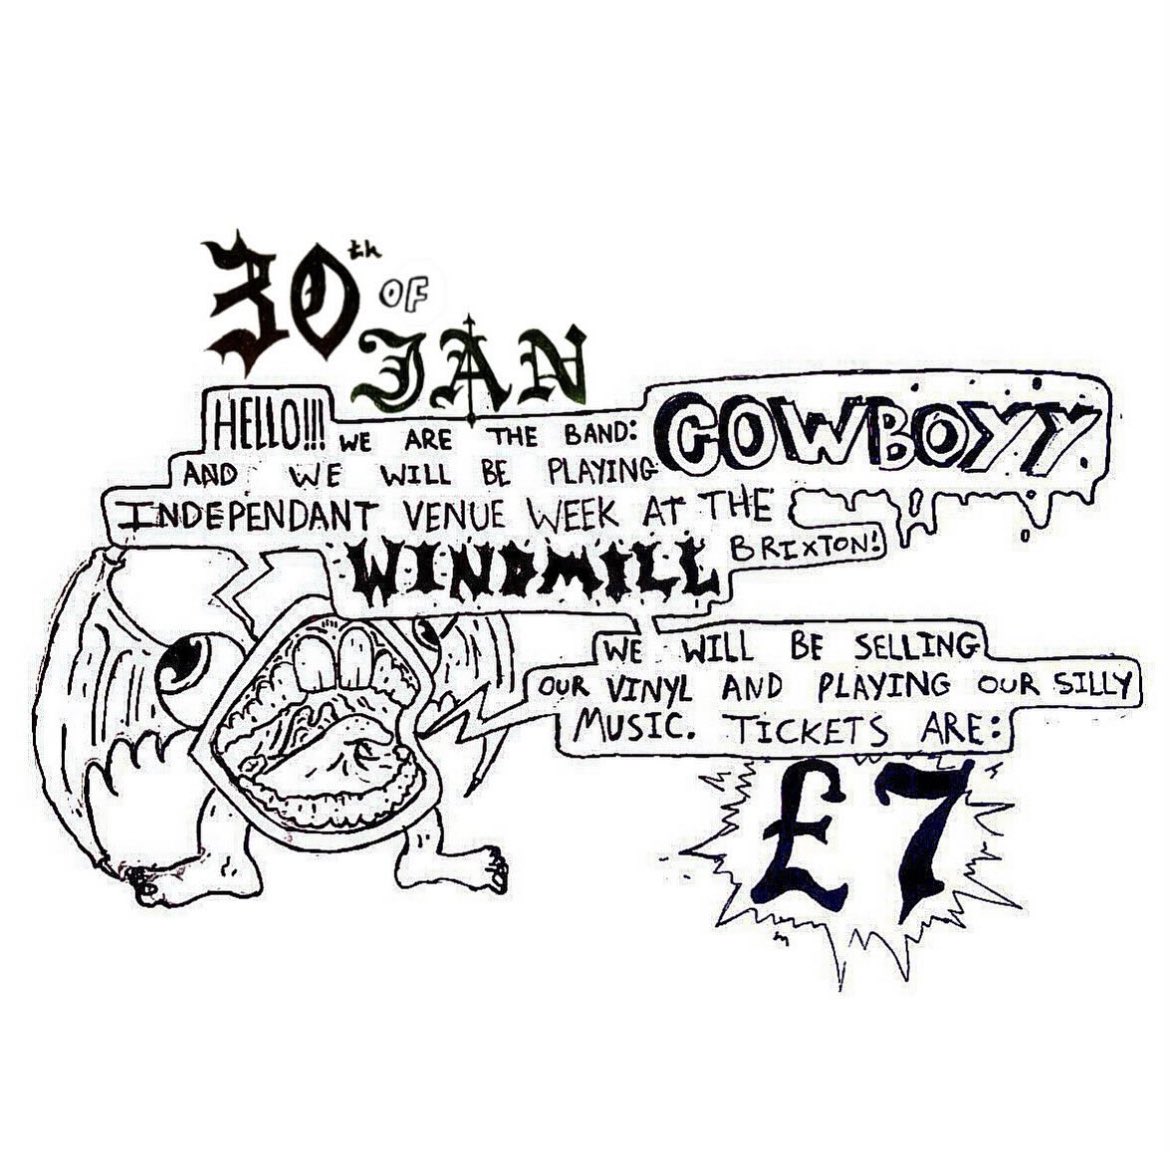 30th OF
JAN
HELLO!!! WE ARE THE BAND: COWBOYY
AND WE WILL BE PLAYING
INDEPENDANT VENUE WEEK AT THE
WINDMILL BRIXTON!
WE WILL BE SELLING
OUR VINYL AND PLAYING OUR SILLY
MUSIC. TICKETS ARE:
£7